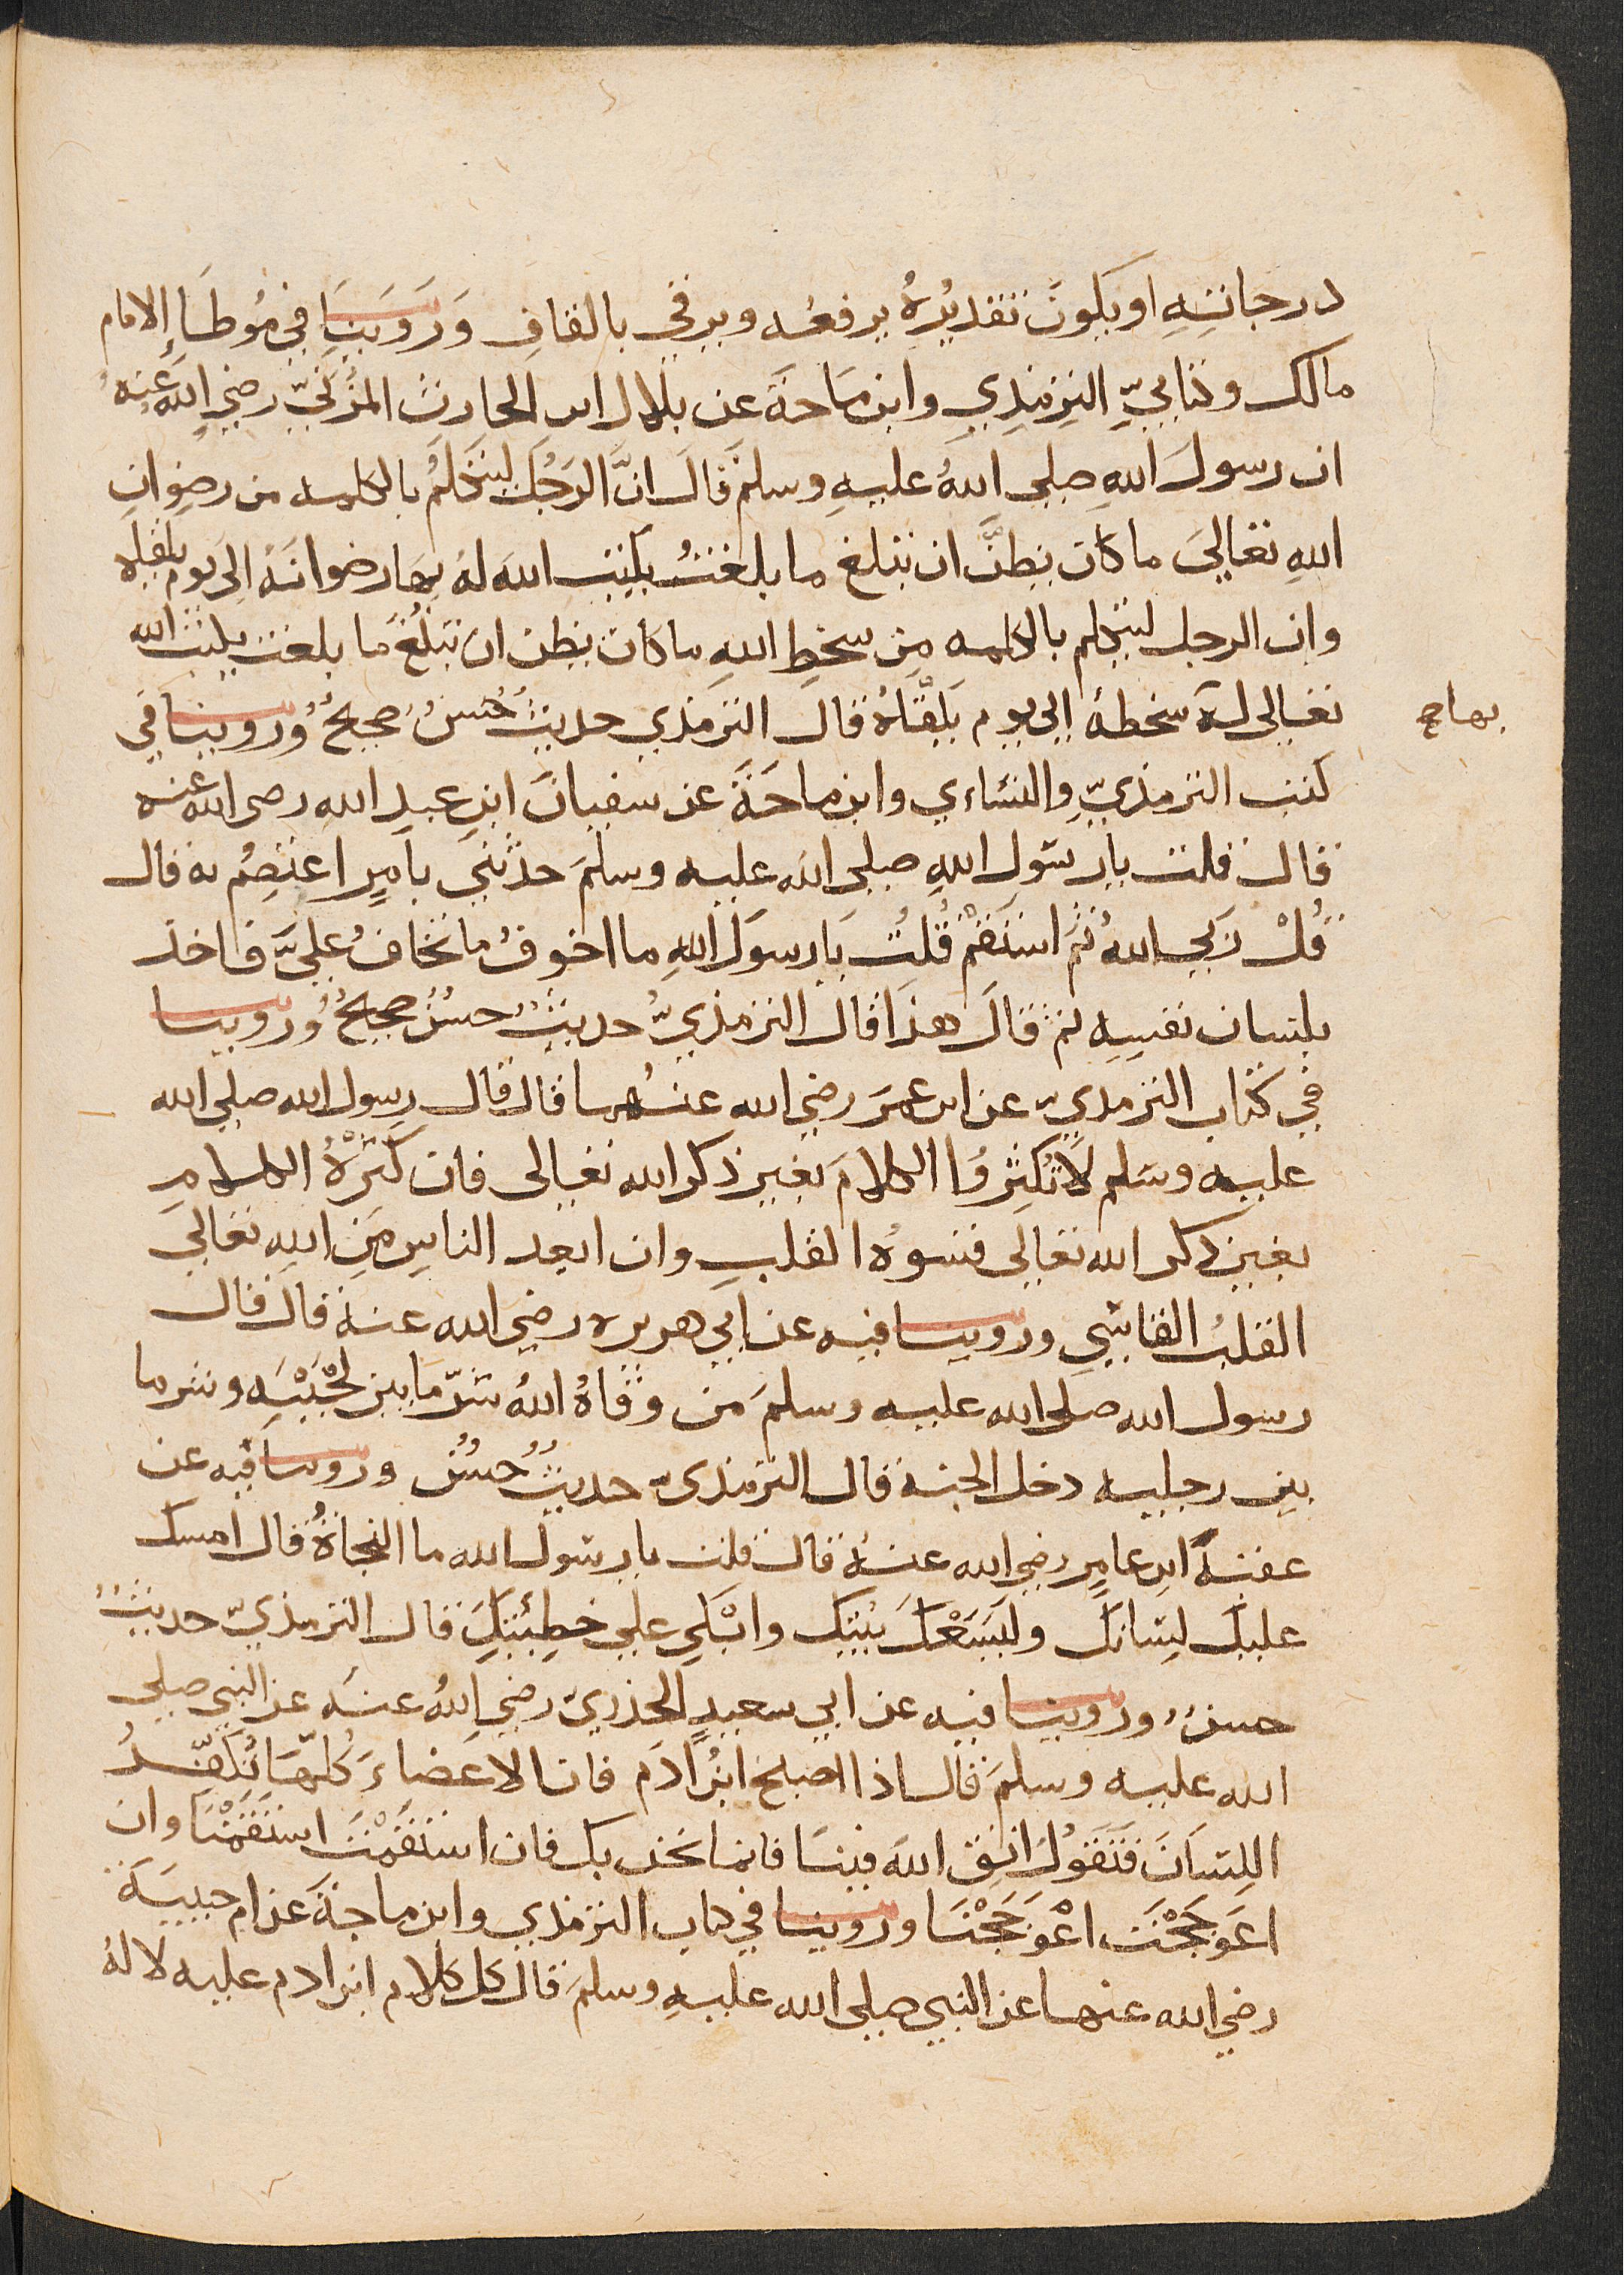 درجاتِهِ او يكونَ تقديْرُهُ يرفعُه ويرقي بالقافِ وَرَوَيْنَا في مُوَطَاءِ الامام
مالك وكتابيِّ التِرمِذِي وابن مَاجَة عن بلال ابن الحارث المُزَنيّ رضي الله عنهُ
ان رسولَ اللهِ صلى اللهُ عليهِ وسلمَ قَالَ انَّ الرَجُلَ ليَتَكَلَّمُ بالكلمه من رضوانِ
اللهِ تعاليَ ما كان يظنَّ ان تبلغ ما بلغتُ يكتب الله لهُ بها رضوانَهُ الى يوم يلقاه
وان الرجل ليتكلم بالكلمه مِن سخطِ اللهِ ما كان يظن ان تبلُغَ ما بلغت يكتب الله
تعالى لهُ سخطهُ الى يوم يَلقَاهُ قال الترمذي حديثٌ حَسنٌ صحيحٌ وروينا في
بها صح
كتب الترمذيِّ والنسَاءي وابن ماجَةَ عن سفيانَ ابنِ عبدِ اللهِ رضى الله عنه
قال قلت يا رسَول اللهِ صلى الله عليه وسلمَ حدثني بامرٍ اعتصِمُ به قال
قُلْ رَبي اللهُ ثم استَقِمْ قُلتُ يَا رسوَلَ اللهِ ما اخوفُ ما تخَافُ عليَّ فاخذ
بلسان نفسِهِ ثم قالَ هذَا قال الترمذيُّ حديثٌ حسنٌ صحيحٌ وروينا
في كتاب الترمذيِّ عن ابن عمَر رضي الله عنهُما قال قال رسول الله صلى الله
عليه وسَلم لَا تُكثِرُوا الكلامَ بغير ذكر الله تعالى فان كَثْرَةُ الكلامِ
بغير ذكر الله تعالى قسوهُ القلبِ وان ابعد الناسِ مِن اللهِ تعالي
القلبُ القاسِي وروينا فيه عن ابي هريره رضي الله عنهُ قال قال
رسول الله صلى الله عليه وسلمَ من وقاهُ اللهُ شرّ مَا بين لَحْيَيْهِ وشر ما
بين رجليه دخل الجنة قال الترمذىّ حديثٌ حَسنٌ وروينا فيه عن
عقبهَ ابنِ عامِرٍ رضي الله عنهُ قال قلت يا رسَولُ الله ما النجاةُ قال امسك
عليكَ لِسَانكَ وليَسَعْكَ بيْتك وابْكي علي خطِيئتِكَ قال الترمذيّ حديثٌ
حسنٌ وروينا فيه عن ابي سعيدٍ الخدريّ رضي اللهُ عنهُ عن النبي صلى
الله عليه وسلمَ قالَ اذا اصبح ابنُ ادَمَ فان الاعضاءَ كُلّهَا تُكَفّرُ
اللِسَانَ فَتَقَولُ اتقِ اللهَ فينَا فانما نحن بك فان استَقَمْتَ استَقَمْنَا وان
اعَوَجَجْتَ اعْوَجَجْنَا وروينا في كتاب الترمذي وابن ماجَةَ عن ام حبيبَة
رضي الله عنها عن النبي صلى الله عليهِ وسلمَ قال كل كلام ابن ادم عليه لا لهُ